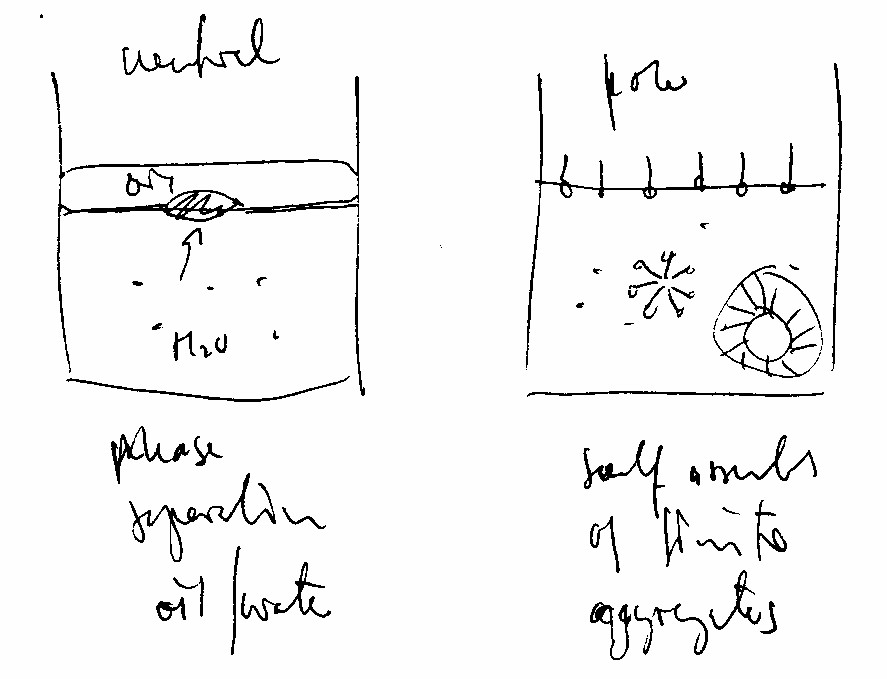 neutral
polar
oil
H2O
phase
separation
oil/water
self assembly
of finite
aggregates